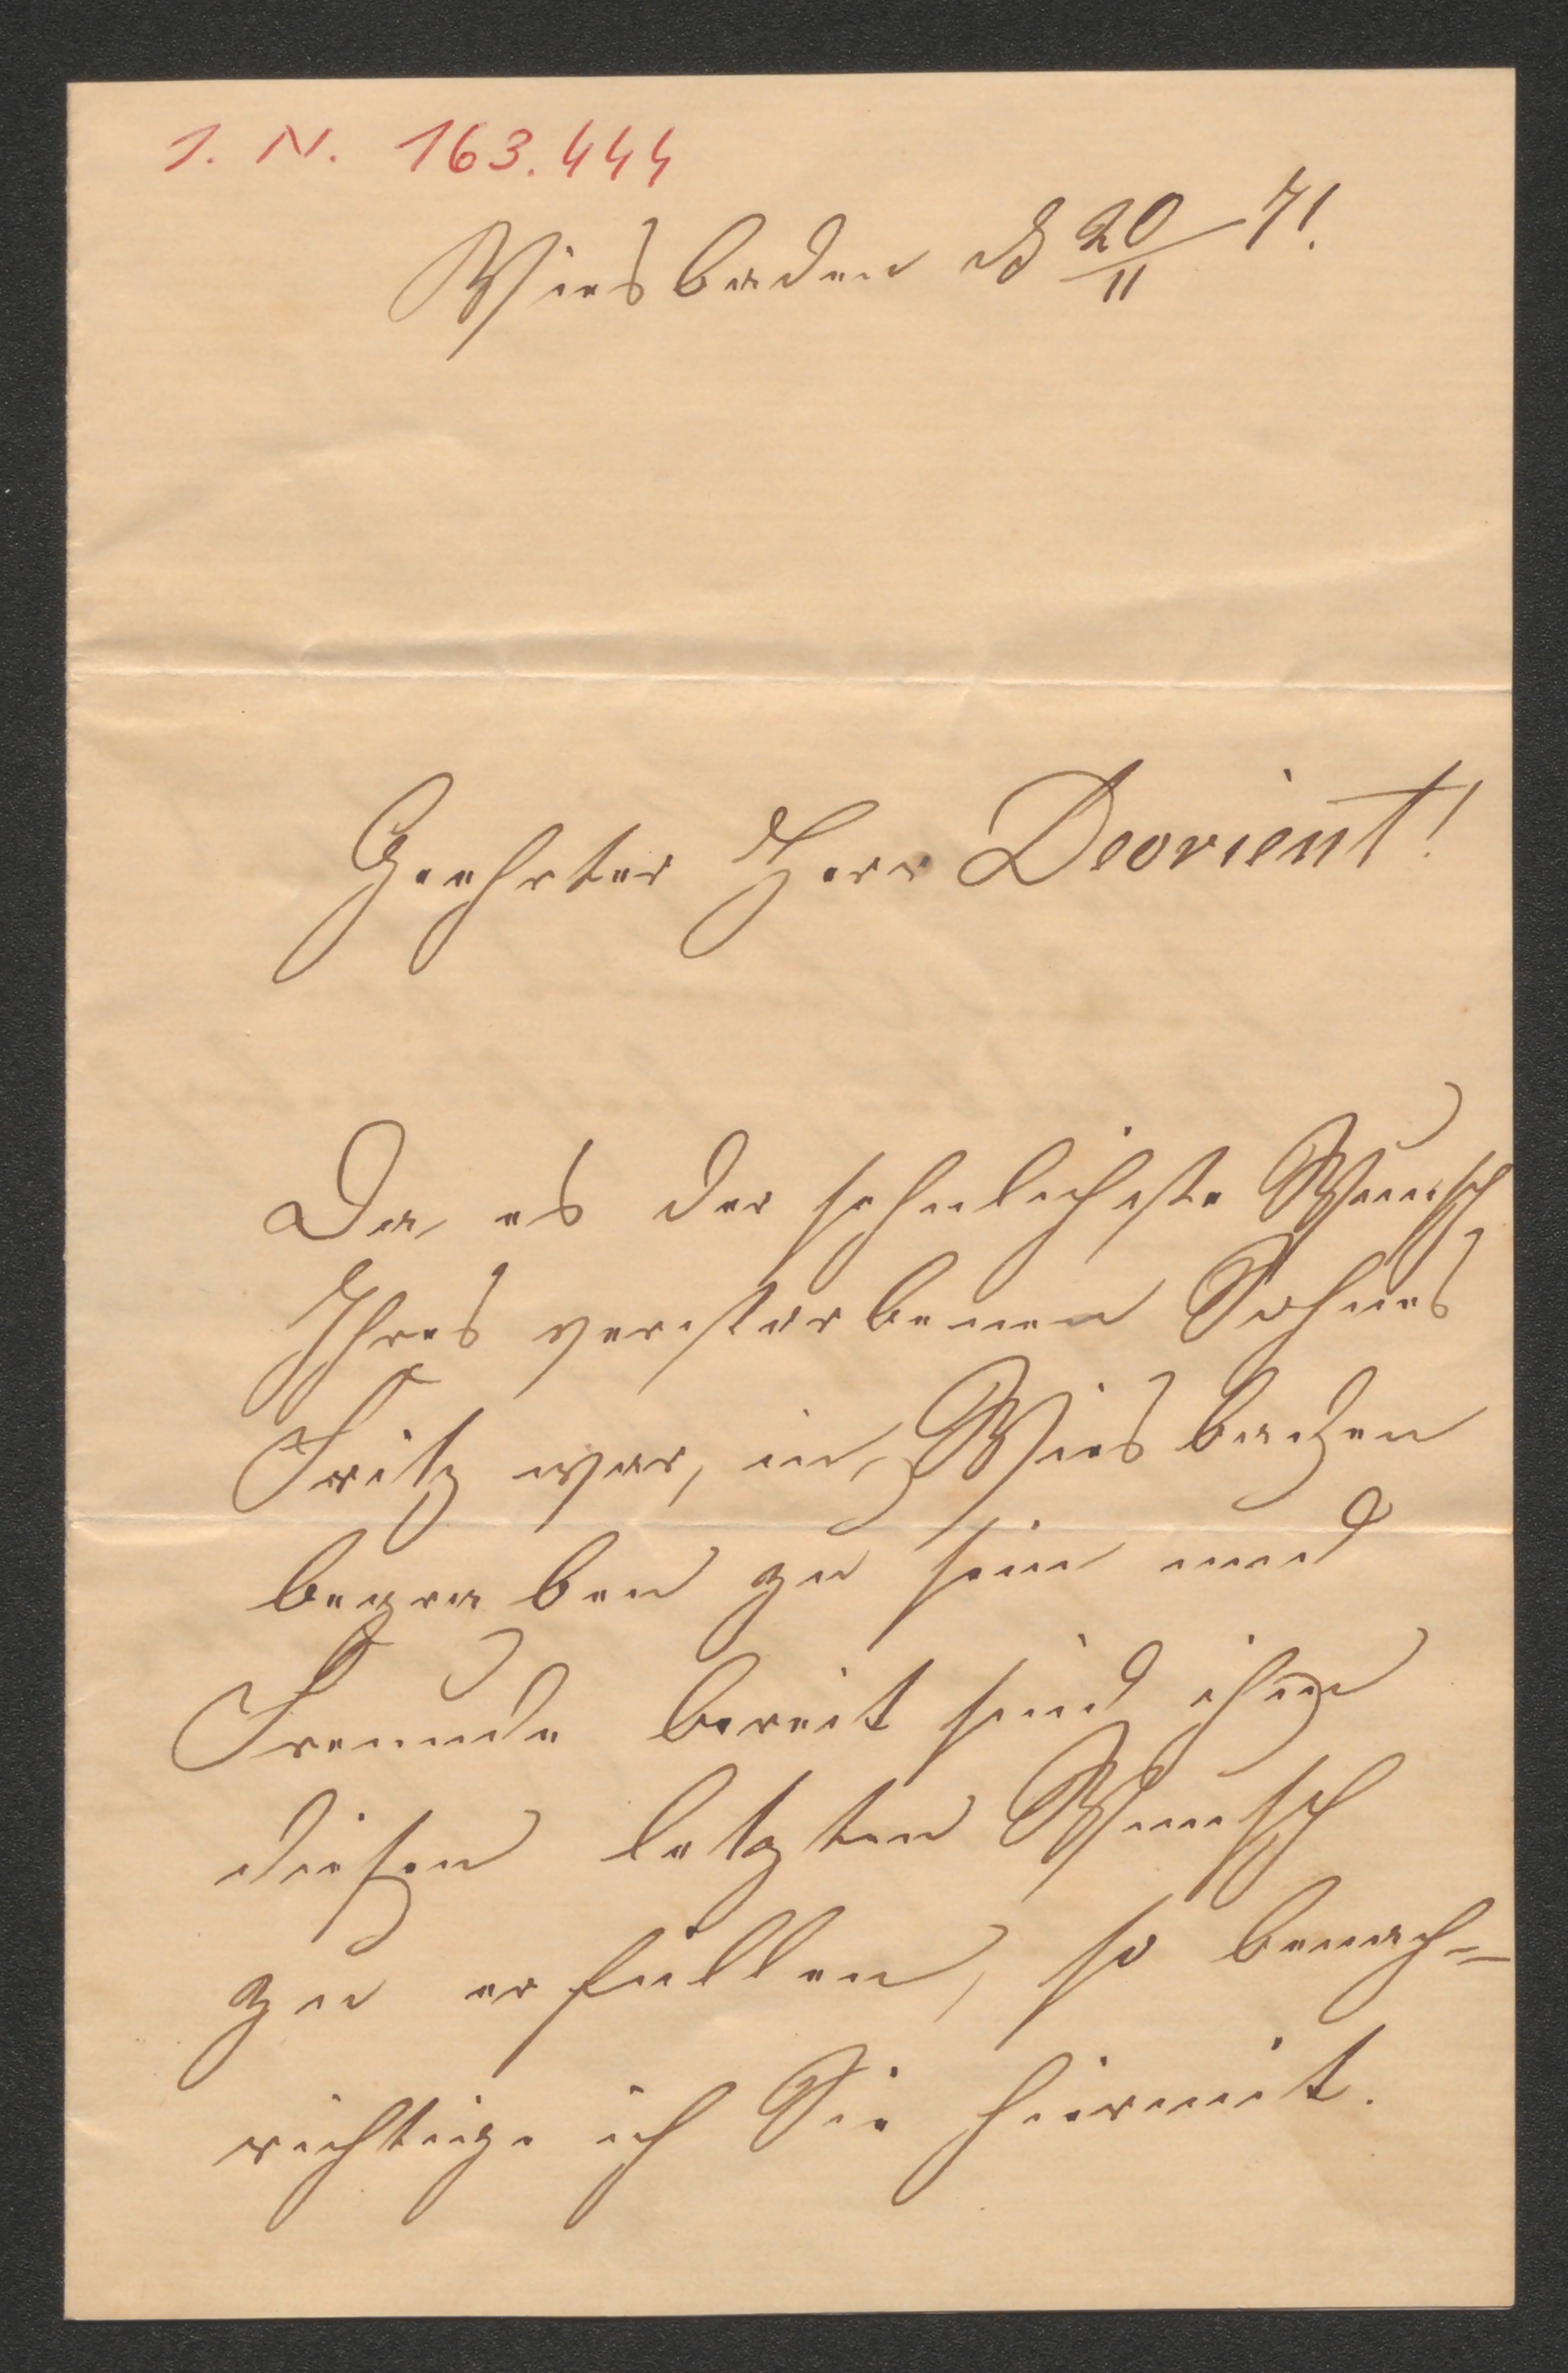 I. N. 163.444
Wiesbaden d 20/11 71.
Geehrter Herr Devrient!
Da es der sehnlichste Wunsch
Ihres verstorbenen Sohnes
Fritz war, in Wiesbaden
begraben zu sein und
Freunde bereit sind ihm
diesen letzten Wunsch
zu erfüllen, so benach=
richtige ich Sie hiermit.